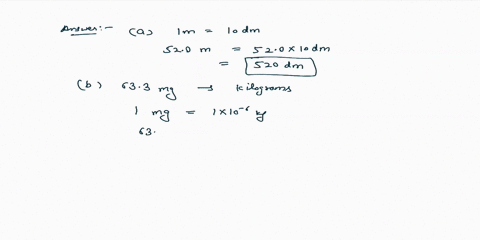 Answer:- (a) 1m = 10 dm
52.0 m = 52.0 × 10 dm
= 520 dm
(b) 63.3 mg → kilograms
1 mg = 1×10⁻⁶ kg
63.